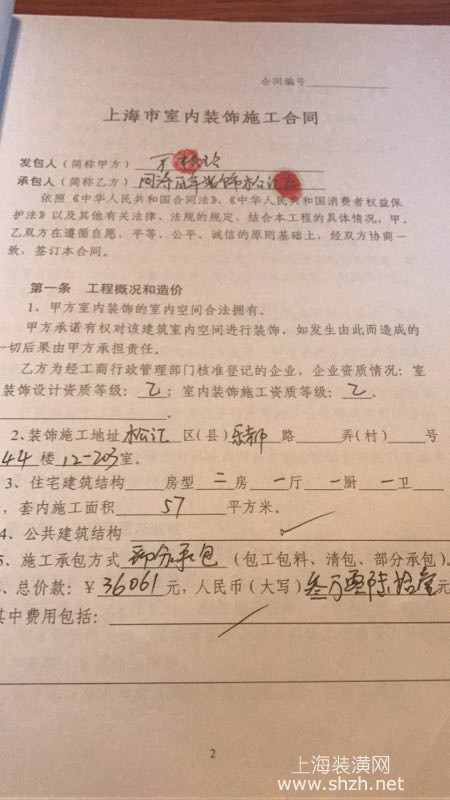 合同编号
上海市室内装饰施工合同
发包人（简称甲方）
承包人（简称乙方）同济百年装饰松江
依照《中华人民共和国合同法》、《中华人民共和国消费者权益保
护法》以及其他有关法律、法规的规定，结合本工程的具体情况，甲、
乙双方在遵循自愿、平等、公平、诚信的原则基础上，经双方协商一
致，签订本合同。
第一条 工程概况和造价
1、甲方室内装饰的室内空间合法拥有。
甲方承诺有权对该建筑室内空间进行装饰，如发生由此而造成的
一切后果由甲方承担责任。
乙方为经工商行政管理部门核准登记的企业，企业资质情况：室
装饰设计资质等级：乙；室内装饰施工资质等级：乙。
。
2、装饰施工地址松江区（县）乐都路 弄（村） 号
44楼12-203室。
3、住宅建筑结构 房型二房一厅一厨一卫
，套内施工面积 57 平方米。
4、公共建筑结构
5、施工承包方式部分承包（包工包料、清包、部分承包）。
、总价款：¥36061元，人民币（大写）叁万零陆拾壹元
其中费用包括：
2
上海装潢网
www.shzh.net